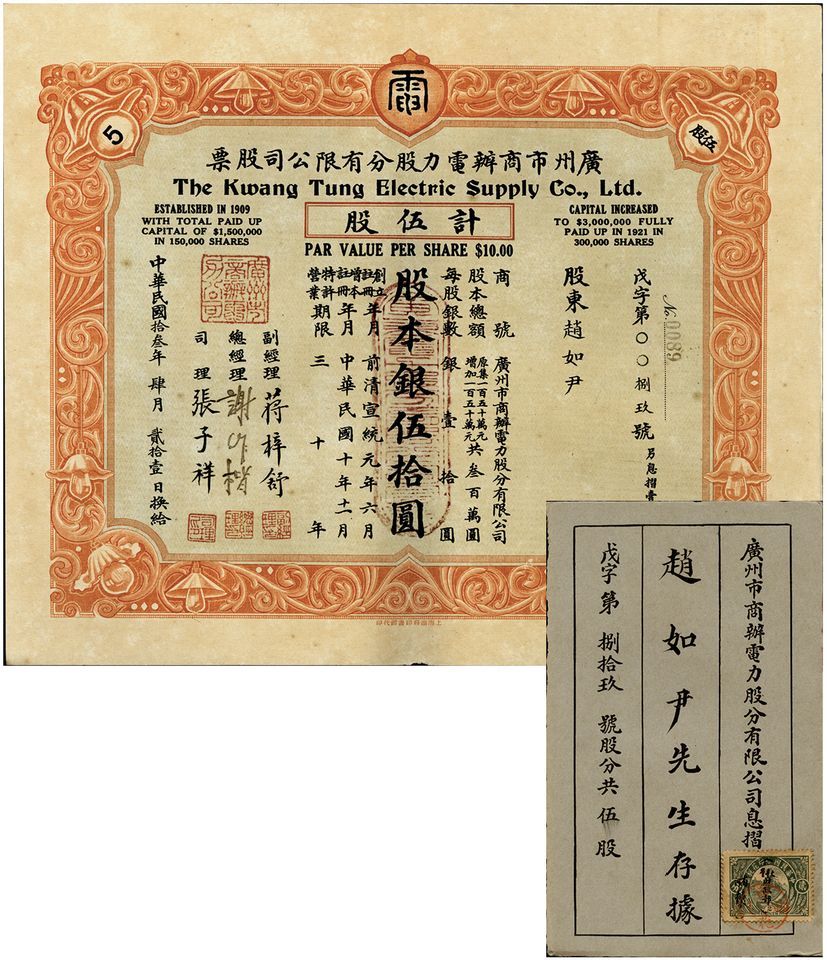 電
5
伍股
廣州市商辦電力股分有限公司股票
The Kwang Tung Electric Supply Co., Ltd.
ESTABLISHED IN 1909
WITH TOTAL PAID UP
CAPITAL OF $1,500,000
IN 150,000 SHARES
計伍股
CAPITAL INCREASED
TO $3,000,000 FULLY
PAID UP IN 1921 IN
300,000 SHARES
PAR VALUE PER SHARE $10.00
No. 0089
戊字第〇〇捌玖號
另息摺壹
股東趙如尹
商號 廣州市商辦電力股分有限公司
股本總額 原集一百五十萬元 增加一百五十萬元 共叁百萬圓
每股銀數 銀壹拾圓
股本銀伍拾圓
創立註冊年月 前清宣統元年六月
增本註冊年月 中華民國十年十一月
特許營業期限 三十年
副經理 蔣梓舒
總經理 謝作楷
司理 張子祥
廣州市商辦電力公司
中華民國拾叁年肆月貳拾壹日換給
廣州市商辦電力股分有限公司息摺
趙如尹先生存據
戊字第捌拾玖號股分共伍股